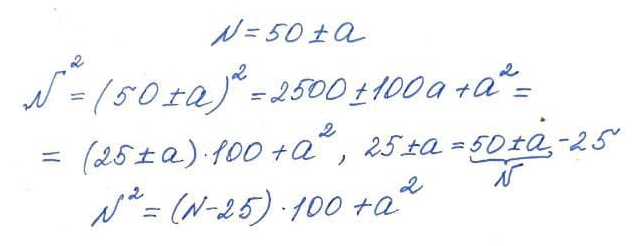 N = 50 ± a
N² = (50 ± a)² = 2500 ± 100a + a² =
= (25 ± a)·100 + a², 25 ± a = 50 ± a - 25
N
N² = (N-25)·100 + a²